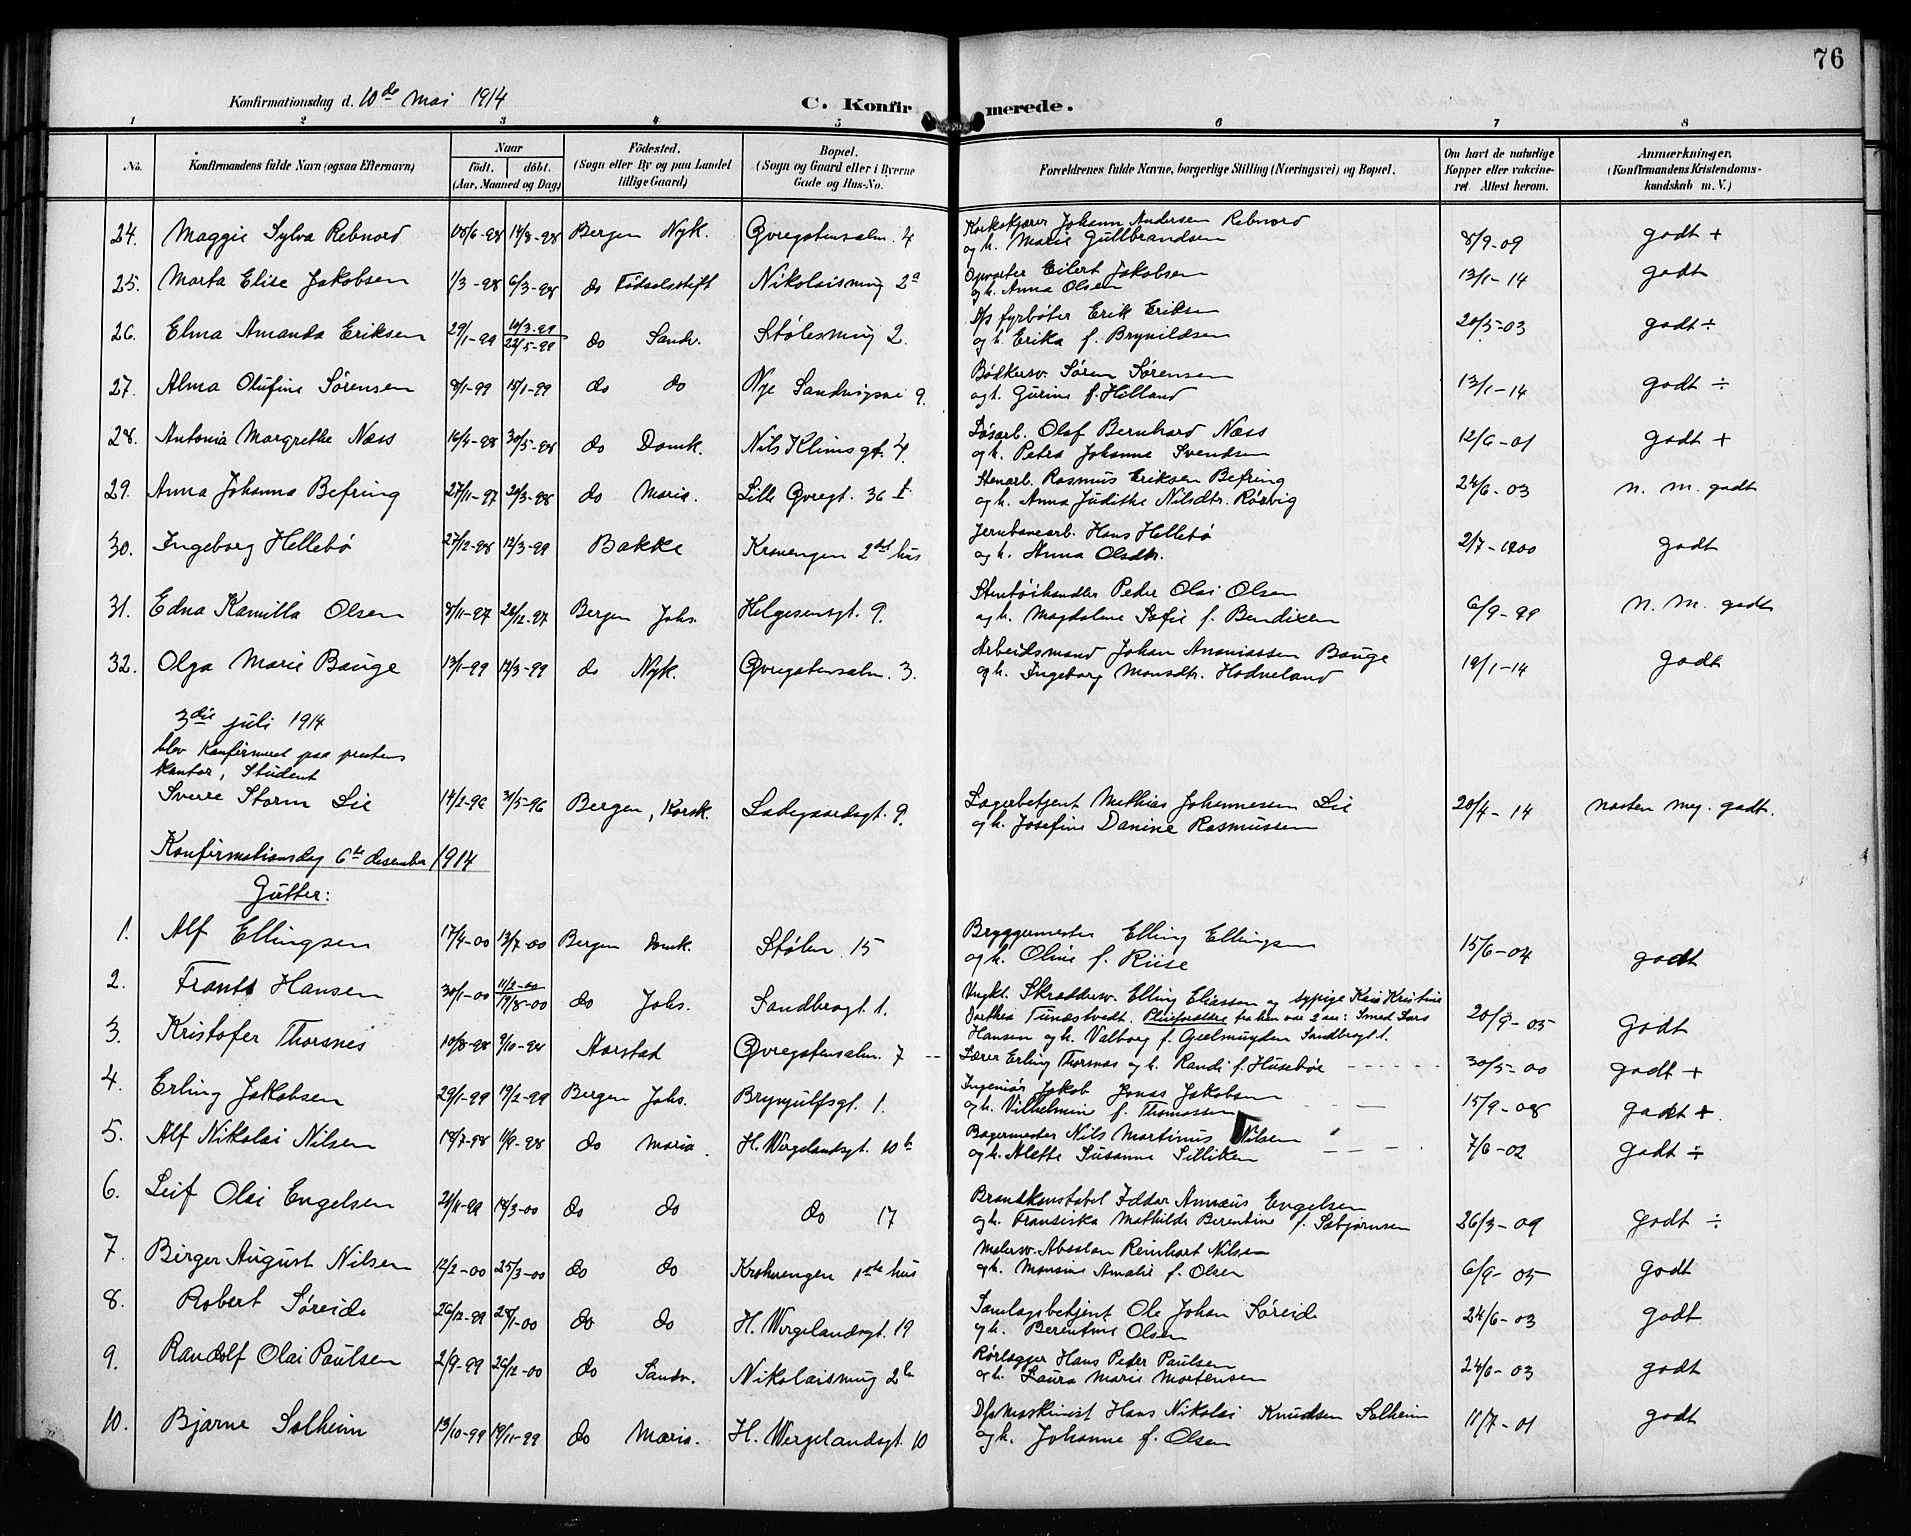 76
Konfirmationsdag d. 10de Mai 1914
C. Konfirmerede.
1 2 3 4 5 6 7 8
No. Konfirmandens fulde Navn (ogsaa Efternavn) Naar födt. döbt. (Aar, Maaned og Dag) Födested. (Sogn eller By og paa Landet tillige Gaard) Bopæl. (Sogn og Gaard eller i Byerne Gade og Hus-No. Forældrenes fulde Navne, borgerlige Stilling (Næringsvei) og Bopæl. Om havt de naturlige Kopper eller vakcineret. Attest herom. Anmærkninger. (Konfirmandens Kristendomskundskab m. V.)
24. Maggie Sylva Rebnord 14/8-98 Bergen Nyk. Øvregatensalm. 4 Korkskjærer Johann Andersen Rebnord
og h. Marie Gullbrandsen 8/9-09 godt +
25. Marta Elise Jakobsen 1/3-98 6/3-98 do Fødselsstift Nikolaismug 2a Opvarter Eilert Jakobsen
og h. Anna Olsen 13/1-14 godt
26. Elma Amanda Eriksen 29/1-99 10/3-99 22/5-99 do Sandv. Stølesmug 2. D/s fyrbøter Erik Eriksen
og h. Erika f. Brynildsen 20/5-03 godt ÷
27. Alma Olufine Sørensen 8/1-99 15/1-99 do do Nye Sandvigsvei 9. Bødkersv. Søren Sørensen
og h. Gurine f. Helland 13/1-14 godt ÷
28. Antonia Margrethe Næss 16/4-98 30/5-98 do Domk. Nils Klimsgt. 4. Løsarb. Olaf Bernhard Næss
og h. Petra Johanne Svendsen 12/6-01 godt +
29. Anna Johanna Befring 27/11-97 20/3-98 do Maria. Lille Øvregt. 36 I Stenarb. Rasmus Eriksen Befring
og h. Anna Judithe Nilsdtr. Røsvig 24/6-03 n. m. godt
30. Ingeborg Hellebø 27/12-98 12/3-99 Bakke Krohnengen 2det hus Jernbanearb. Hans Hellebø
og h. Anna Olsdtr. 2/7-1900 godt
31. Edna Kamilla Olsen 8/11-97 26/12-97 Bergen Johs. Helgesensgt. 9. Stentøihandler Peder Olai Olsen
og h. Magdalene Sofie f. Bendixen 6/9-99 n. m. godt
32. Olga Marie Bauge 13/1-99 12/3-99 do Nyk. Øvregatensalm. 3. Arbeidsmand Johan Ananiassen Bauge
og h. Ingeborg Monsdtr. Hodneland 19/1-14 godt
3die juli 1914
blev konfirmeret paa prestens
kontor, Student
Sverre Storm Lie 14/2-96 31/5-96 Bergen, Korsk. Ladegaardsgt. 9. Lagerbetjent Mathias Johannessen Lie
og h. Josefine Danine Rasmussen 20/4-14 næsten meg. godt.
Konfirmationsdag 6te desember 1914
Gutter:
1. Alf Ellingsen 17/4-00 13/7-00 Bergen Domk. Stølen 15 Bryggemester Elling Ellingsen
og h. Oline f. Riise 15/6-04 godt
2. Frants Hansen 30/1-00 11/2-00 19/8-00 do Johs. Sandbrogt 1. Ungk. Skræddersv. Elling Eliassen og sypige Kaia Kristine
Dorthea Tunæstvedt. Pleieforældre fra han var 2 aar: Smed Lars
Hansen og h. Valborg f. Geelmuyden Sandbrogt 1. 20/9-05 godt
3. Kristofer Thorsnes 10/8-98 9/10-98 Aarstad Øvregatensalm. 7 Lærer Erling Thorsnes og h. Randi f. Husebøe 30/5-00 godt +
4. Erling Jakobsen 29/1-99 19/2-99 Bergen Johs. Brynjulfsgt. 1. Ingeniør Jakob Jonas Jakobsen
og h. Vilhelmin f. Thomassen 15/9-08 godt +
5. Alf Nikolai Nilsen 18/7-98 11/9-98 do Maria. H. Wergelandsgt. 10b Bagermester Nils Martinus Nilsen
og h. Alette Susanne Silliken 7/6-02 godt ÷
6. Leif Olai Engelsen 21/11-99 18/3-00 do do do 17 Brandkonstabel Eddar Annæus Engelsen
og h. Fransiska Mathilde Berentine f. Sæbjørnsen 26/3-09 godt ÷
7. Birger August Nilsen 12/2-00 25/3-00 do do Krohnengen 1ste hus Malersv. Absalon Reinhart Nilsen
og h. Monsine Amalie f. Olsen 6/9-05 godt
8. Robert Søreide 26/12-99 28/1-00 do do H. Wergelandsgt. 19 Samlagsbetjent Ole Johan Søreide
og h. Berentine Olsen 24/6-03 godt
9. Randolf Olai Paulsen 2/9-99 26/12-00 do Sandv. Nikolaismug 2b Rørlægger Hans Peder Paulsen
og h. Laura Marie Mortensen 24/6-03 godt
10. Bjarne Solheim 13/10-99 19/11-99 do Maria. H. Wergelandsgt. 10 D/s Maskinist Hans Nikolai Knudsen Solheim
og h. Johanne f. Olsen 11/7-01 godt